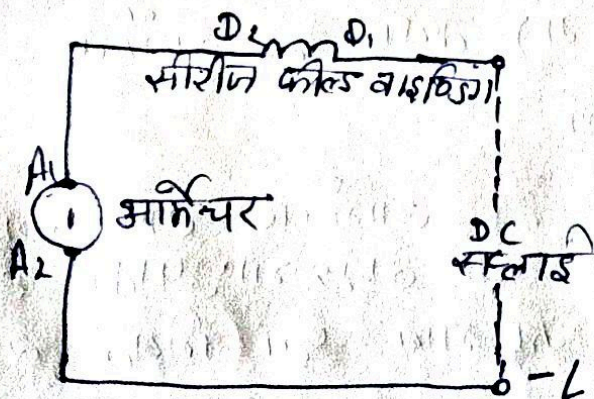 D₂ D₁
सीरीज फील्ड वाइण्डिंग
A₁
आर्मेचर
A₂
DC
सप्लाई
-L